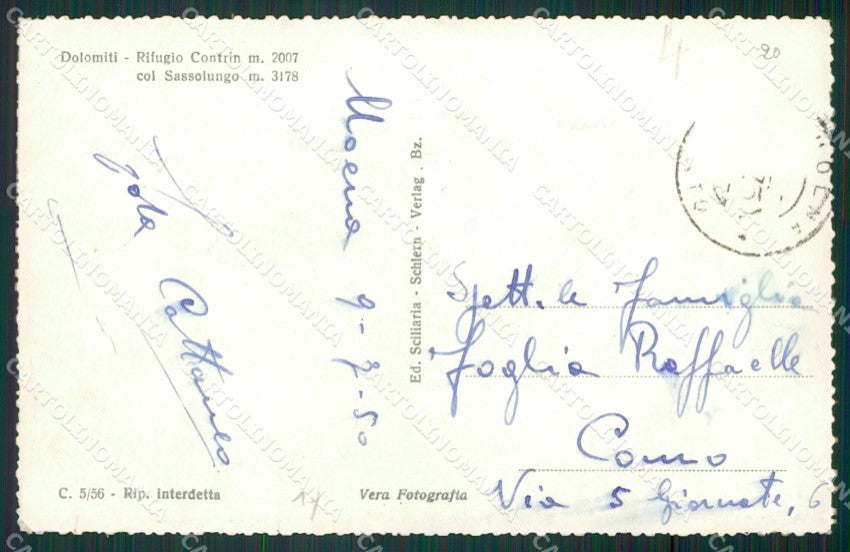 Dolomiti - Rifugio Contrin m. 2007
col Sassolungo m. 3178
Moena 9-7-50
Ida Cattaneo
Ed. Sciliaria - Schlern - Verlag . Bz.
Spett.le Famiglia
Foglia Raffaelle
Como
Via 5 Giornate, 6
C. 5/56 - Rip. interdetta
Vera Fotografia
20
CARTOLINOMANIA